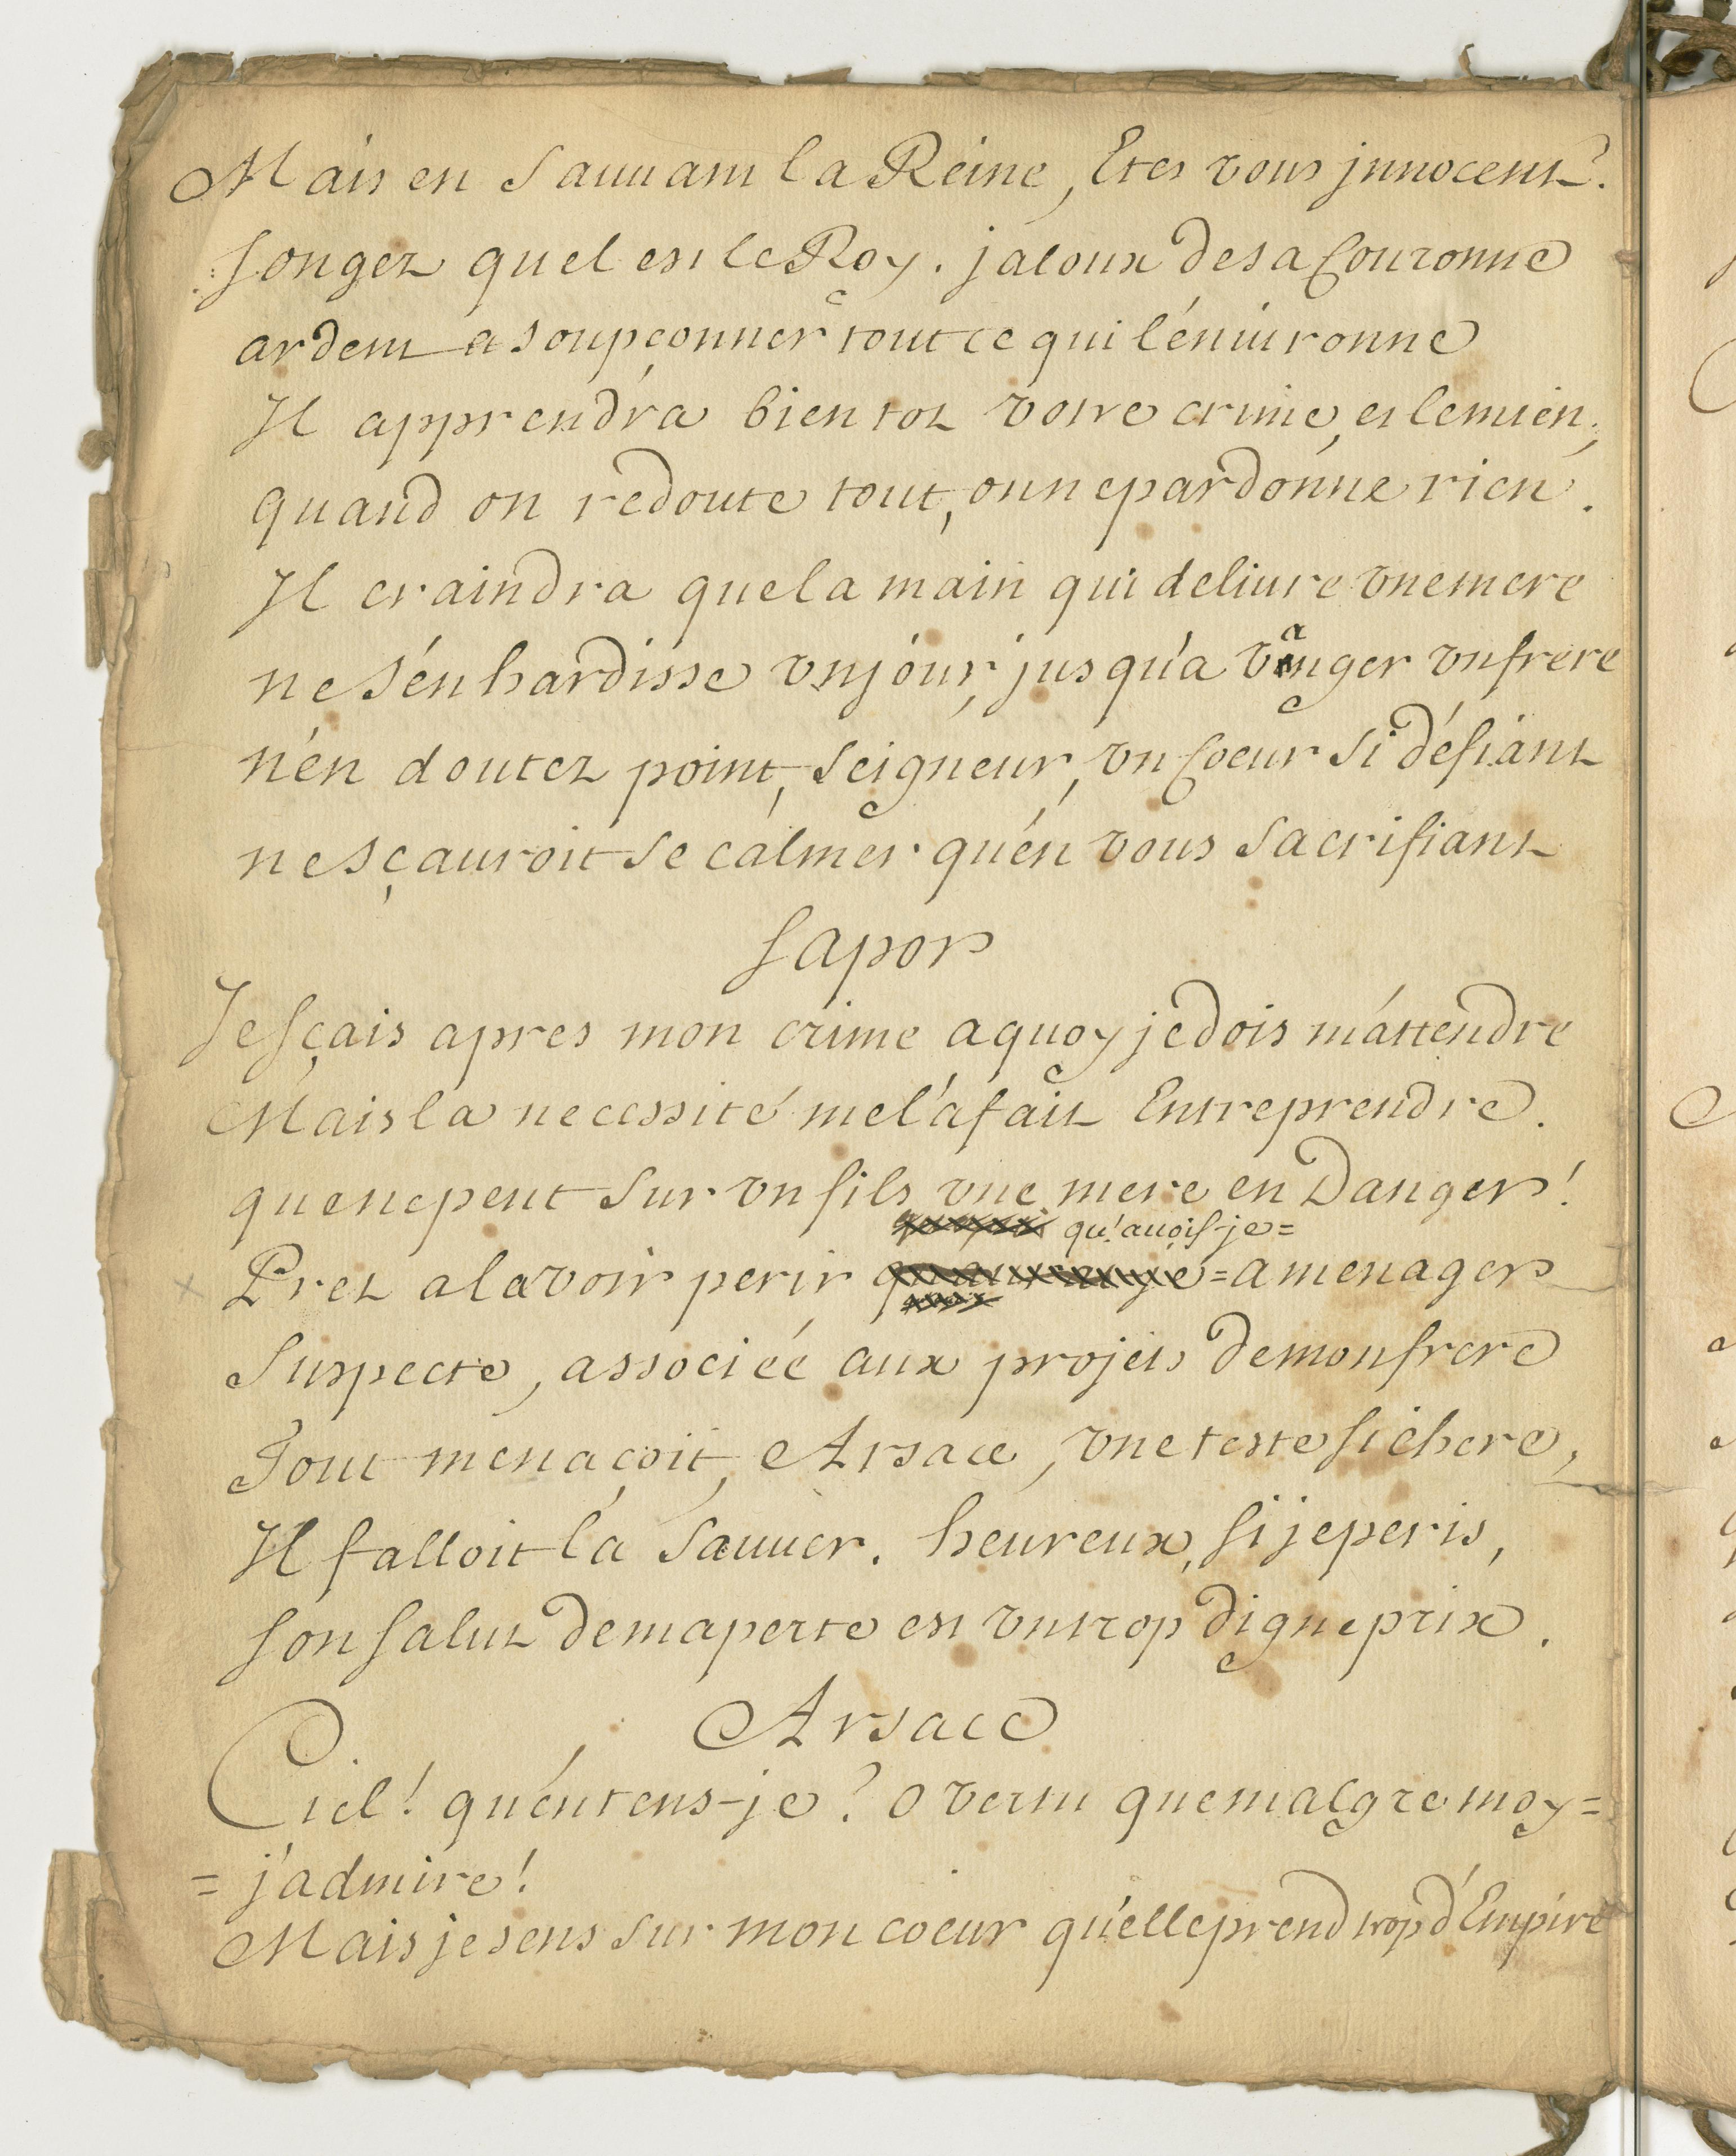 Mais en sauuant la Reine, Etes vous jnnocent?
songez quel est le Roy. jaloux de sa Couronne
ardent a soupçonner tout ce qui l'éniuronne
Il apprendra bientot votre crime, et le mien;
quand on redoute tout, on ne pardonne rien.
Il craindra que la main qui deliure vne mere
ne s'én hardisse vn jour, jusqu'a vanger vn frere
n'én doutez point, seigneur, vn Coeur si défiant
ne sçauroit se calmer qu'én vous sacrifiant
Sapor
Je sçais apres mon crime a quoy je dois m'áttendre
Mais la necessité me l'á fait Entreprendre.
que ne peut sur vn fils vne mere en Danger!
qu'auois-je=
Pret a la voir perir =a menager
Suspecte, associée aux projets de mon frere
Tout menaçoit, Arsace, vne teste si chere,
Il falloit la sauuer. heureux, si je peris,
son salut de ma perte est vn trop digne prix.
Arsace
Ciel! qu'éntens-je? o vertu que malgre moy=
= j'admire!
Mais je sens sur mon coeur qu'elle prend trop d'Empire